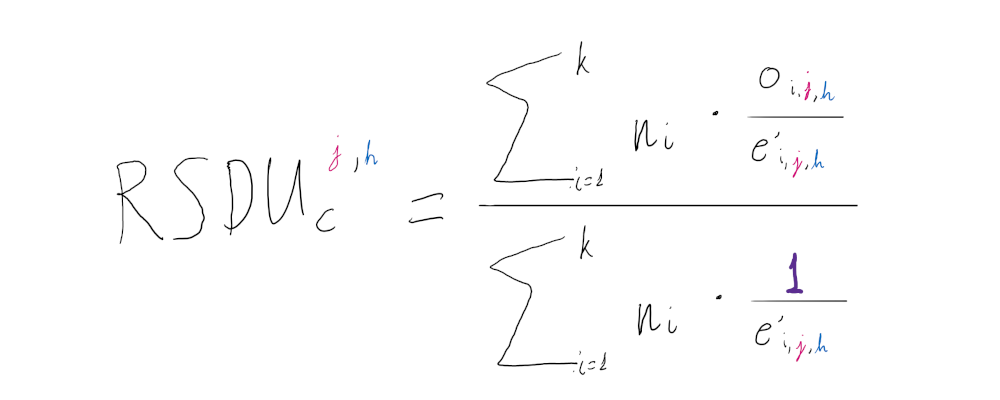 RSDU_c^{j,h} = \frac{\sum_{i=1}^{k} n_i \cdot \frac{o_{i,j,h}}{e'_{i,j,h}}}{\sum_{i=1}^{k} n_i \cdot \frac{1}{e'_{i,j,h}}}